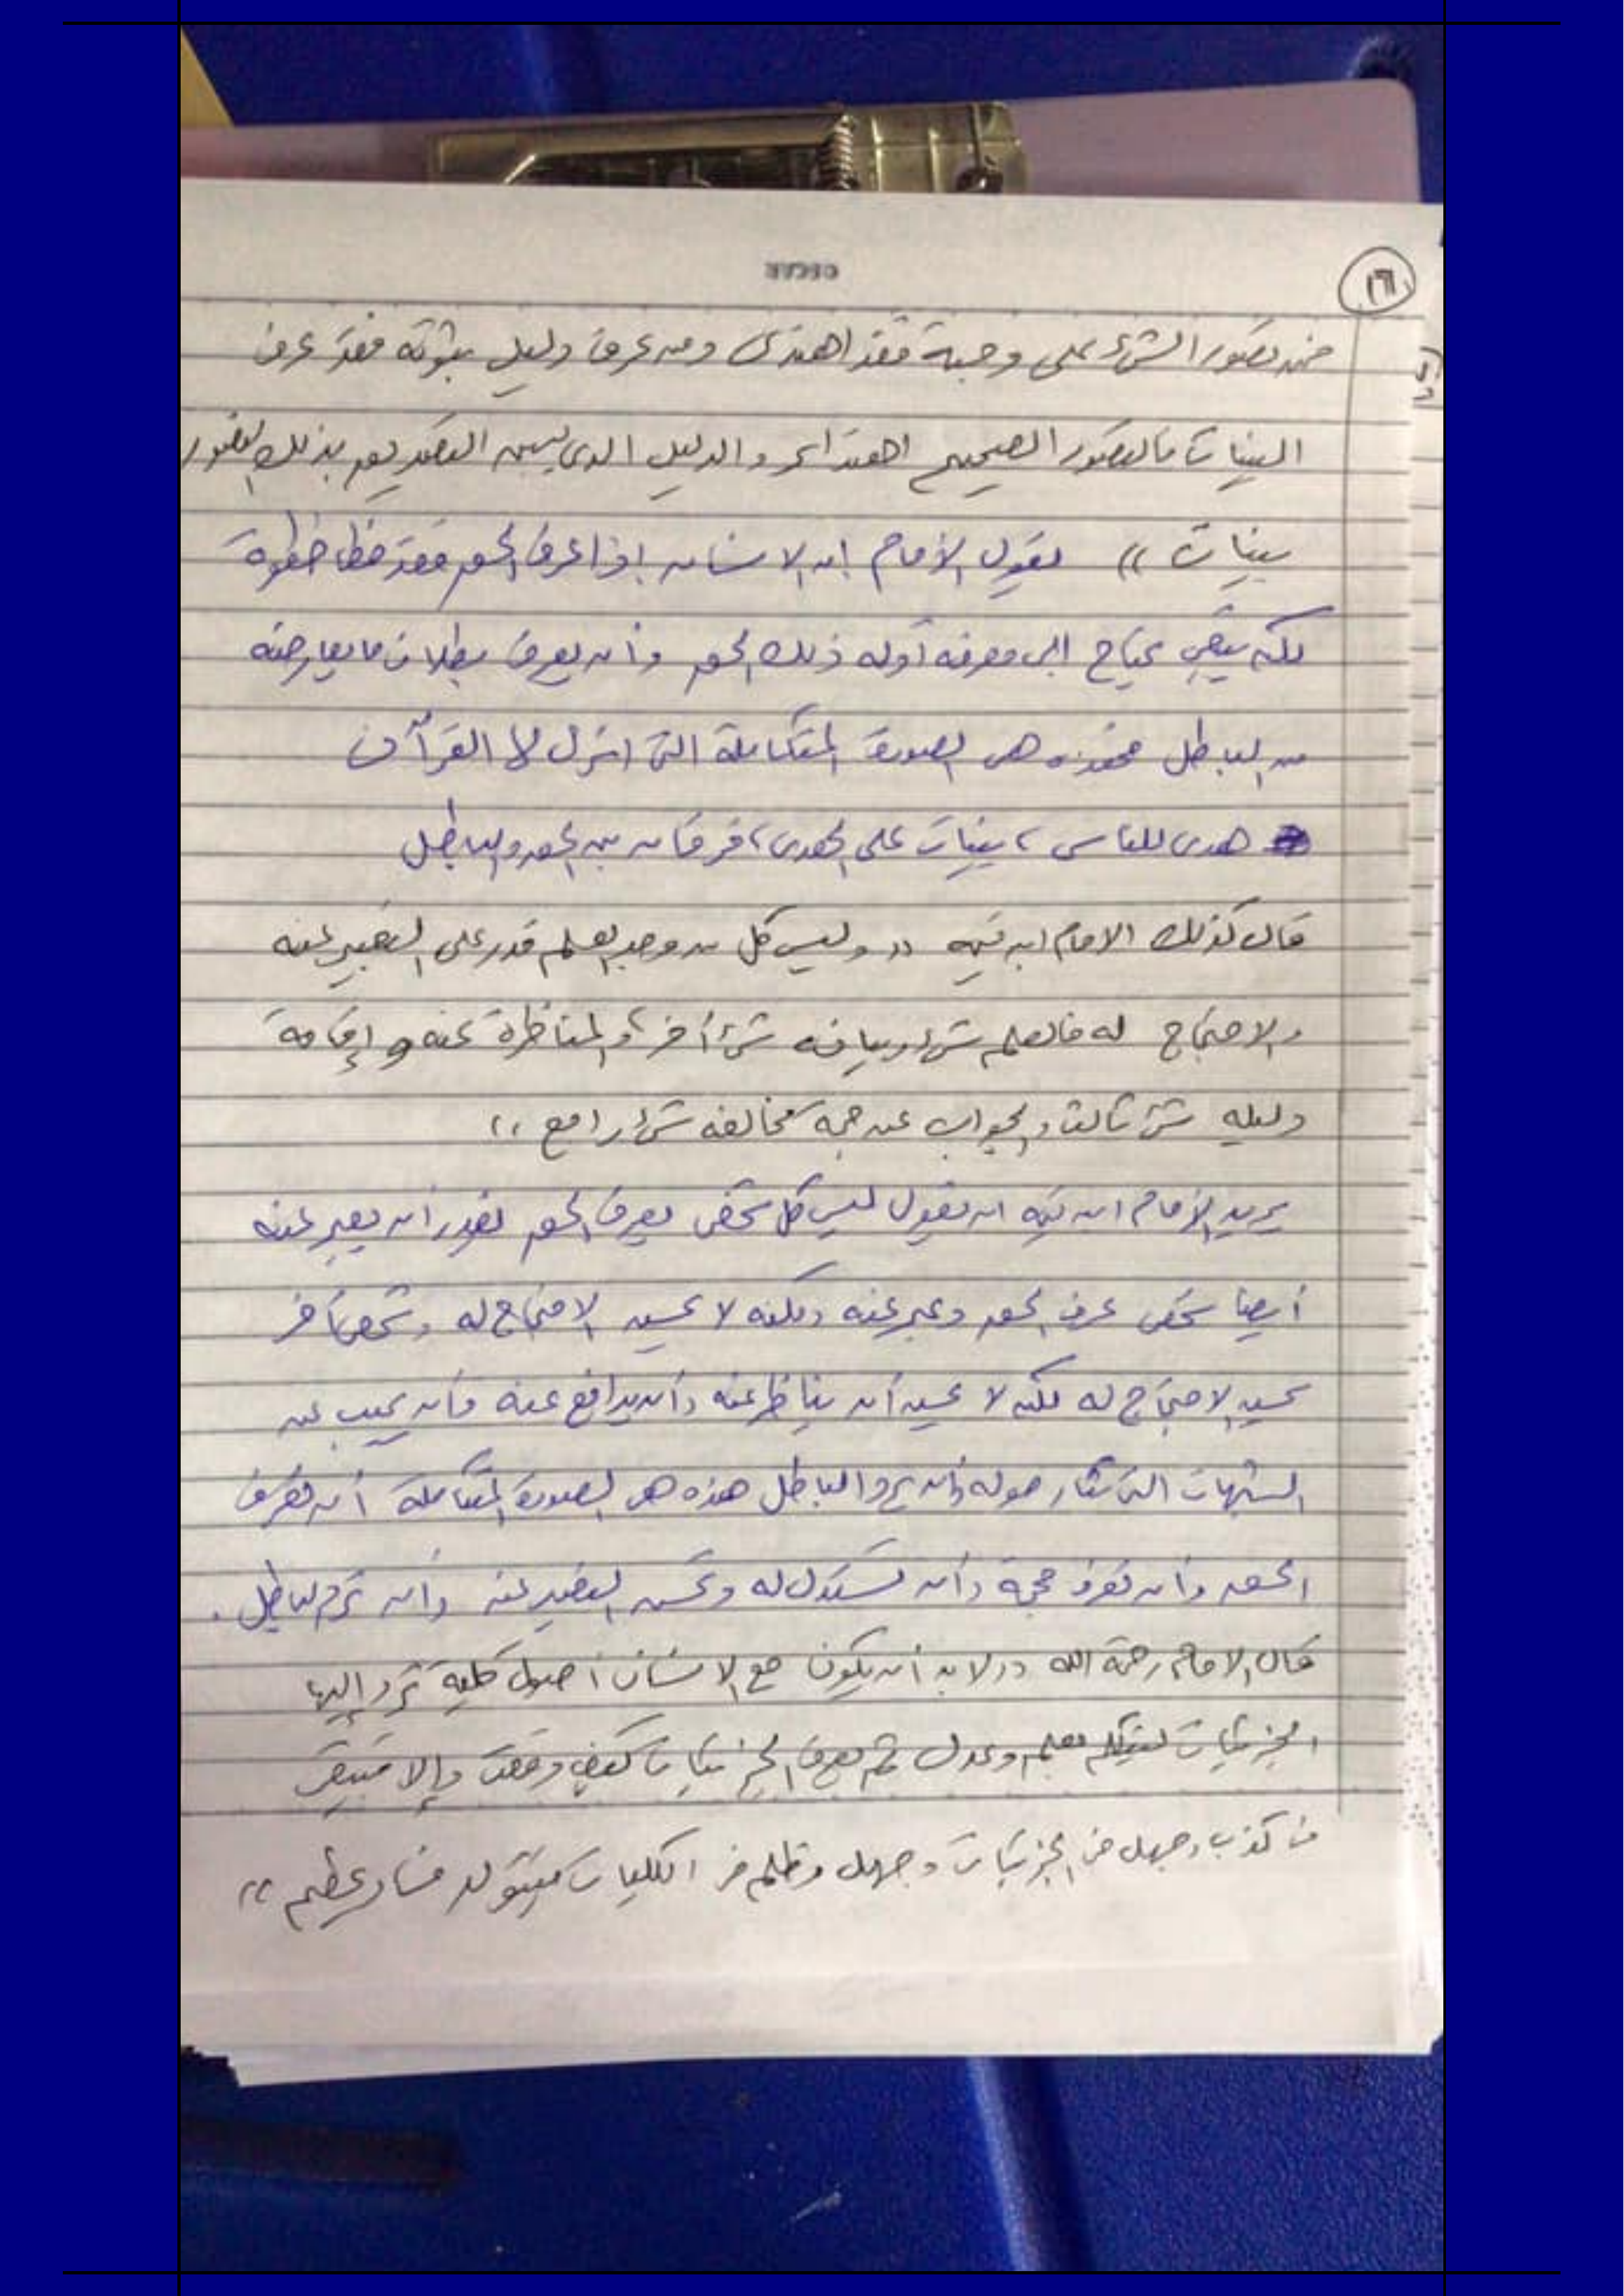 ١٦
فمن تصور الشيء على وجهة فقد اهتدى ومن عرف دليل ثبوته فقد عرف
البينات فالتصور الصحيح اهتداء والدليل الذي يبين التصديق بذلك التصور
بينات )) يقول الإمام ان الانسان إذا عرف الحق فقد خطا خطوة
لكنه يبقى يحتاج الى معرفة أدلة ذلك الحق وأن يعرف بطلان ما يعارضه
من الباطل فهذه هي الصورة المتكاملة التي انزل لها القرآن
هدى للناس ، بينات على الهدى ، فرقان بين الحق والباطل
قال كذلك الامام ابن تيمية (( وليس كل من وجد العلم قدر على التعبير عنه
والاحتجاج له فالعلم شيء وبيانه شيء أخر ، والمناظرة عنه و إقامة
دليله شيء ثالث والجواب عن حجة مخالفه شيء رابع ))
يريد الإمام ابن تيمية ان يقول ليس كل شخص يعرف الحق يقدر أن يعبر عنه
أيضا شخص عرف الحق وعبر عنه ولكنه لا يحسن الاحتجاج له وشخص آخر
يحسن الاحتجاج له لكنه لا يحسن أن يناظر عنه وأن يدافع عنه وأن يجيب عن
الشبهات التي تثار حوله وأن يرد الباطل هذه هي الصورة المتكاملة أن تعرف
الحق وأن تعرف حججه وأن تستدل له وتحسن التعبير عنه وأن ترد الباطل .
قال الامام رحمة الله (( لا بد أن يكون مع الانسان أصول كلية ترد إليها
الجزئيات ليتكلم بعلم وعدل ثم يعرف الجزئيات كيف وقعت وإلا فيبقى
في كذب وجهل في الجزئيات وجهل وظلم في الكليات فيتولد فساد عظيم ))